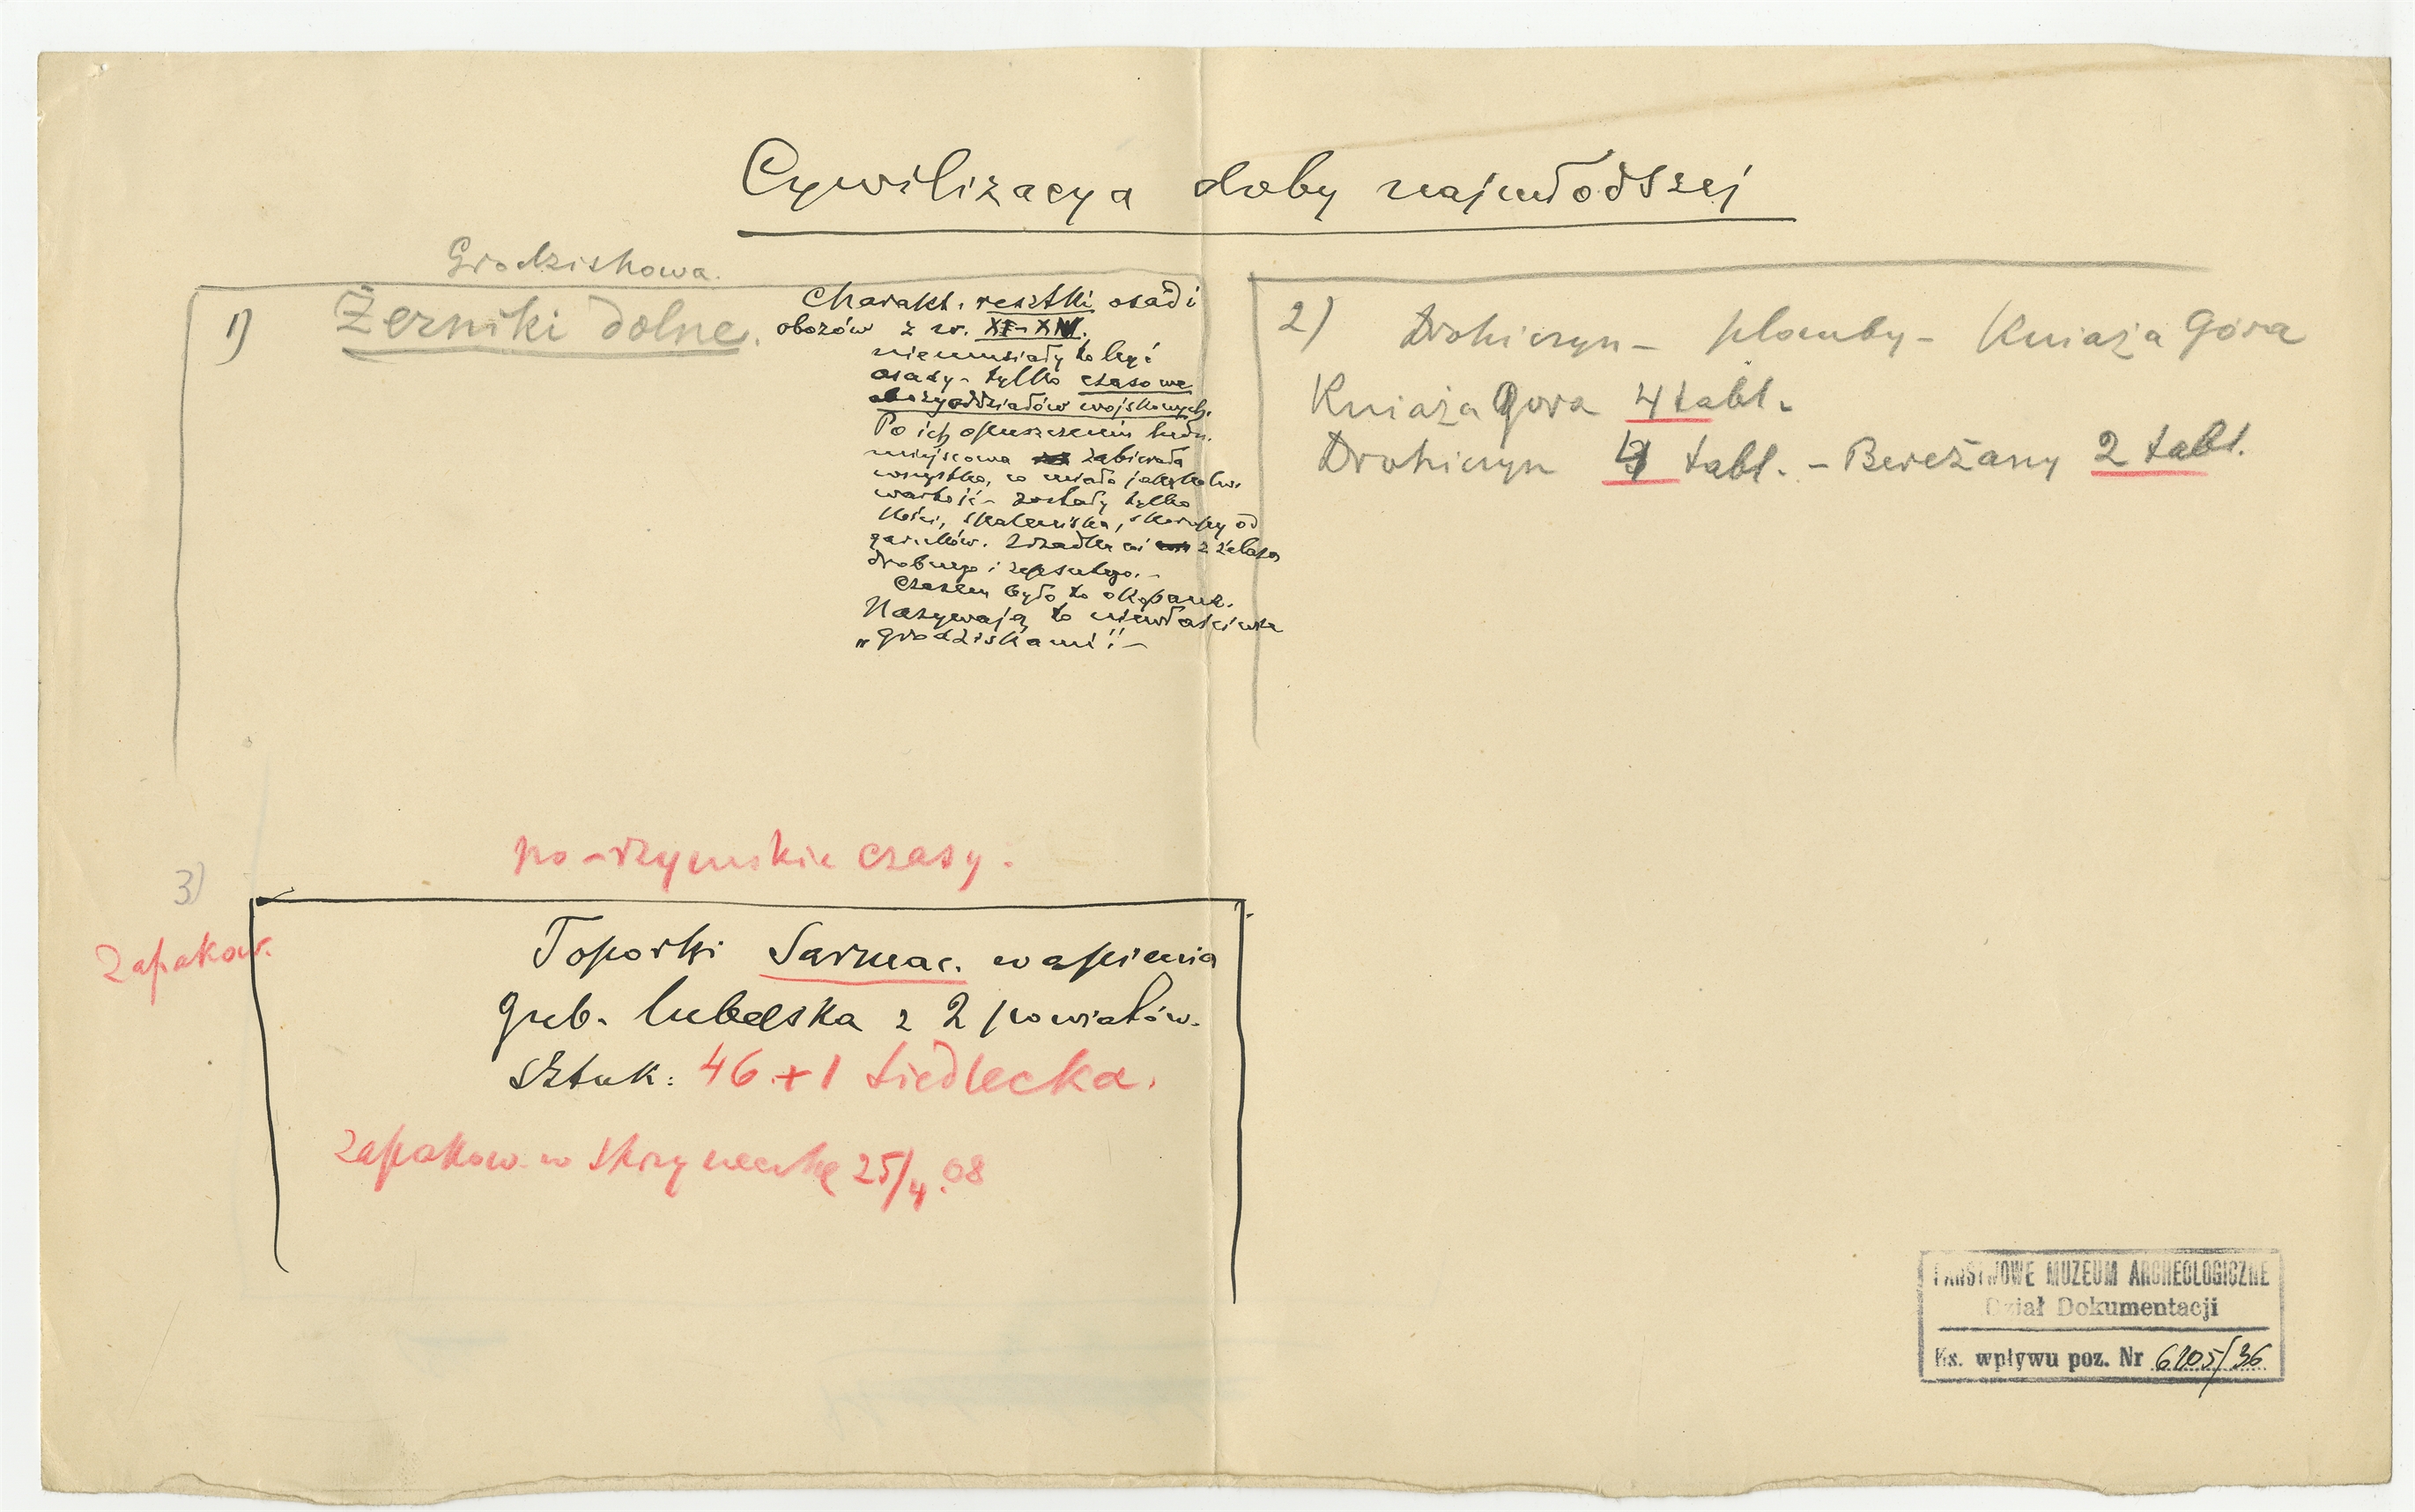 Cywilizacya doby najmłodszej
Grodziskowa.
1) Żerniki dolne.
Charakt. resztki osad i
obozów z w. XI-XIV.
niemusiały to być
osady - tylko czasowe
obozy oddziałów wojskowych.
Po ich opuszczeniu ludn.
miejscowa zabierała
wszystko, co miało jakąkolw.
wartość - zostały tylko
kości, skorupy od
garnków. z żelaza
drobnego i zepsutego. -
Czasem było to okopane.
Nazywają to niewłaściwie
„grodziskami"! -
2) Drohiczyn - plomby - Kniaża Góra
Kniaża Gora 4 tabl.
Drohiczyn 4 tabl. - Bereżany 2 tabl.
po-rzymskie czasy.
3)
Zapakow.
Toporki Sarmac. wapienia
gub. lubelska z 2 powiatów.
Sztuk: 46 + 1 Siedlecka.
Zapakow. w skrzyneczkę 25/4.08
PAŃSTWOWE MUZEUM ARCHEOLOGICZNE
Dział Dokumentacji
Ks. wpływu poz. Nr 6205/36